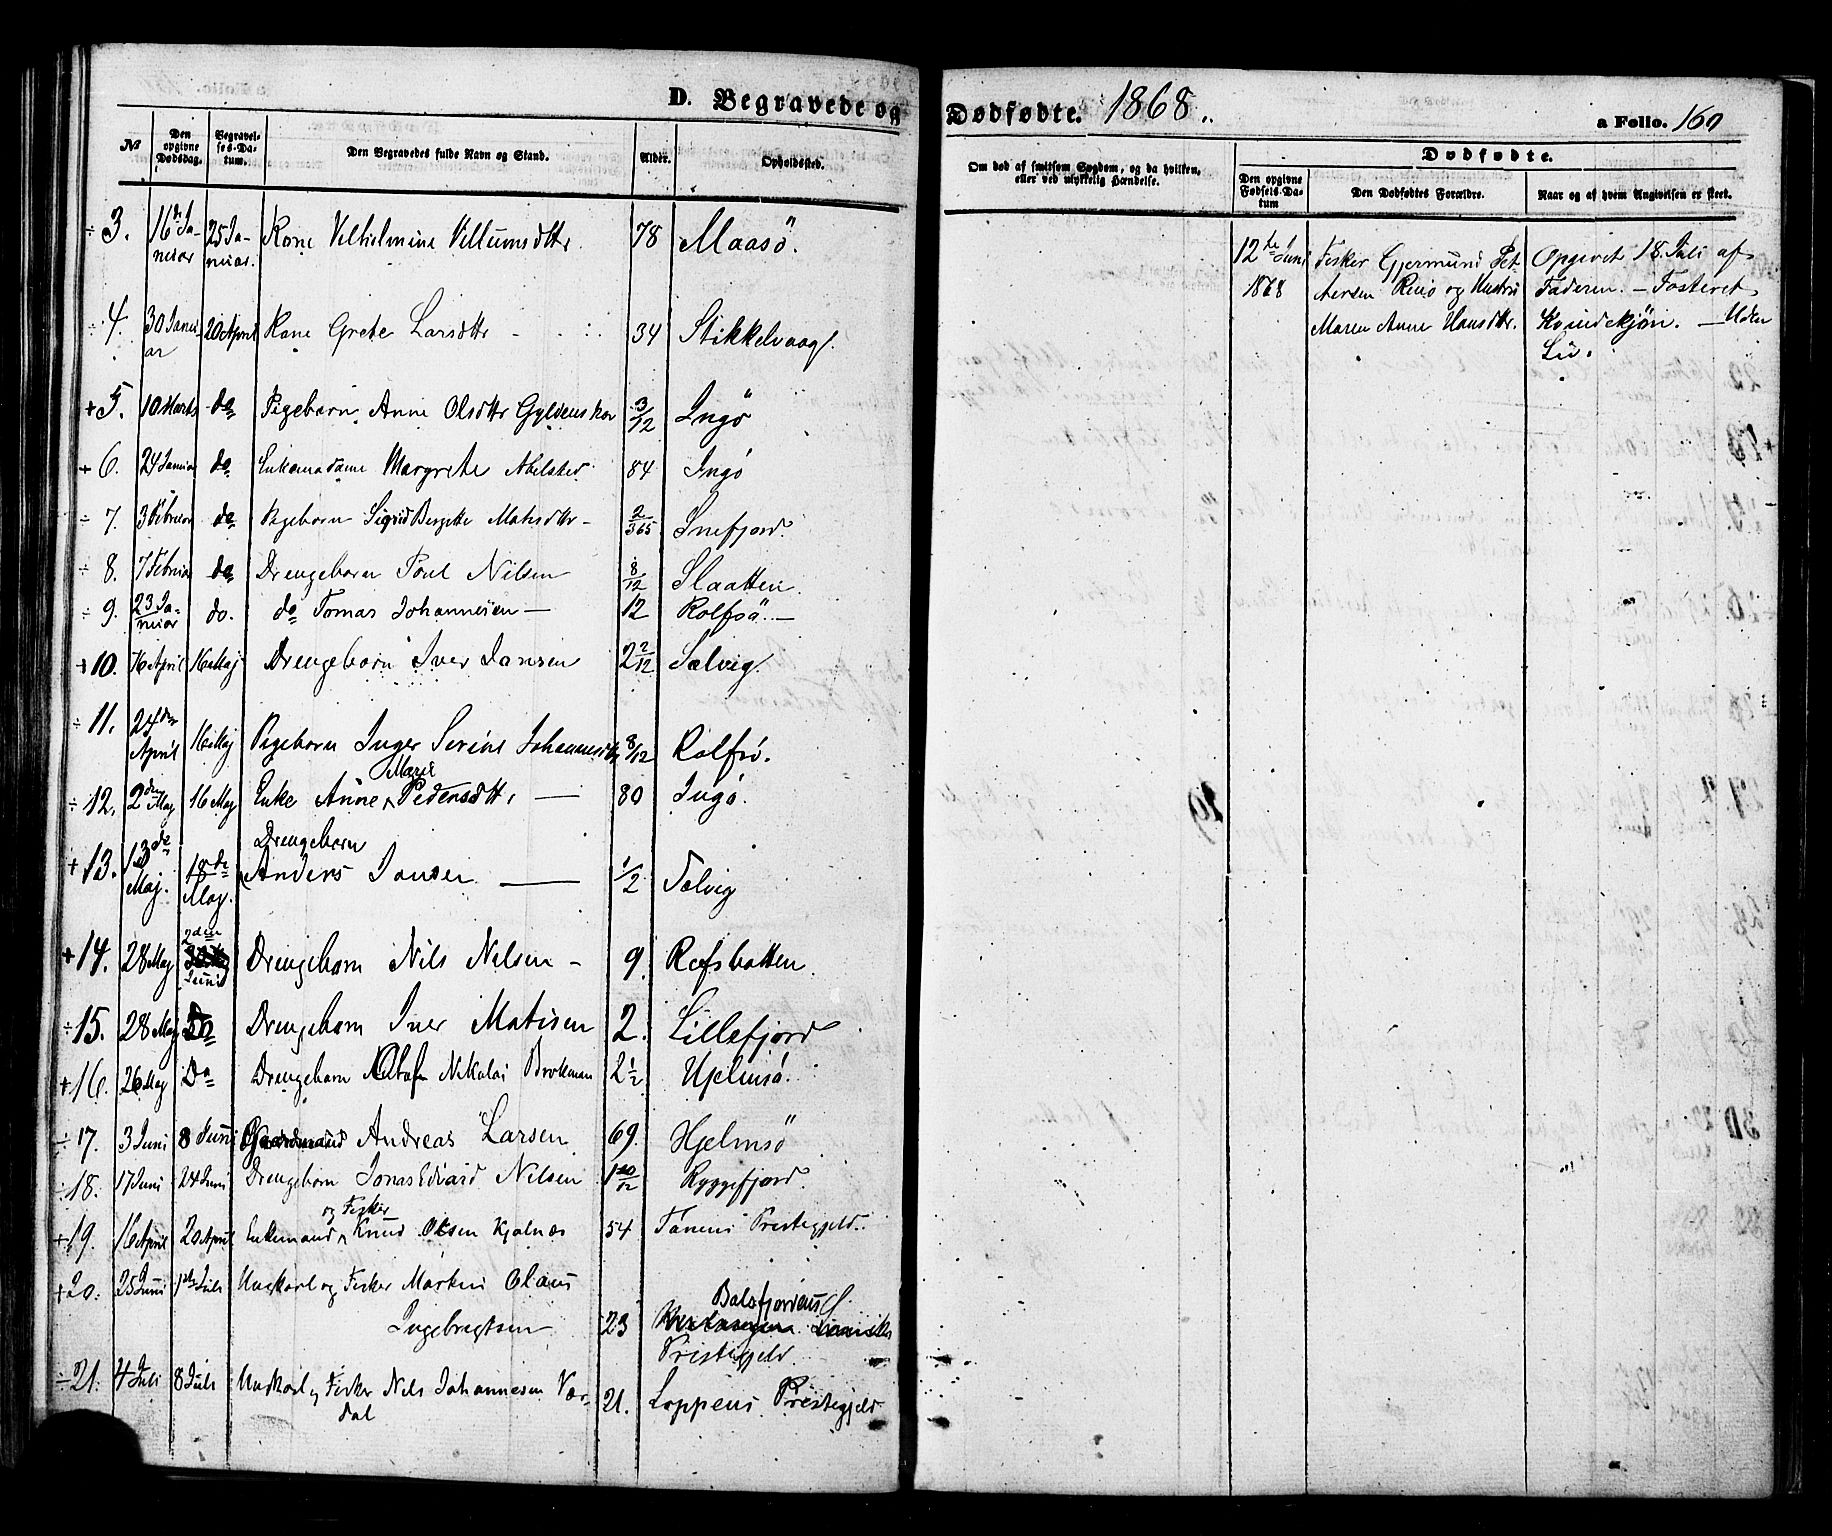 D. Begravede og Dødfødte. 1868.
a Folio. 160
No
Den opgivne Dødsdag.
Begravelses-Datum.
Den Begravedes fulde Navn og Stand.
Alder.
Opholdssted.
Om død af smitsom Sygdom, og da hvilken, eller ved ulykkelig Hændelse.
Dødfødte.
Den opgivne Fødsels-Datum
Den Dødfødtes Forældre.
Naar og af hvem Angivelsen er skeet.
÷ 3. 16de Januar 25 Januar. Kone Vilhelmine Villumsdttr 78 Maasö.
÷ 4. 30 Januar 20 April Kone Grete Larsdttr 34 Stikkelvaag.
+ 5. 10 Marts do Pigebarn Anne Olsdttr Gyldenskor 3/12 Ingö
+ 6. 24 Januar do Enkemadame Margrete 84 Ingö
÷ 7. 3 Februar do Pigebarn Sigrid Bergette Matisdttr - 2/365 Snefjord.
÷ 8. 7 Februar do Drengebarn Poul Nilsen 8/12 Slaatten.
÷ 9. 23 Januar do. do Tomas Johannesen - 12 Rolfsö. -
+ 10. 16 April 16 Maj Drengebarn Iver Jansen 2 2/12 Selvig.
÷ 11. 24den April 16 Maj Pigebarn Inger Serine Johannesdttr 8/12 Rolfsö.
÷ 12. 2den Maj 16 Maj Enke Anne Marie Pedersdttr. - 80 Ingö.
+ 13. 13de Maj. 18de Maj. Drengebarn Anders Jansen - 1/2 Selvig
+ 14. 28 Maj 2den Juni Drengebarn Nils Nilsen - 9. Refsbotten.
÷ 15. 28 Maj Do Drengebarn Iver Matisen 2. Lillefjord
+ 16. 26 Maj Do Drengebarn Olaf Nikolai Brokman 2 1/2 Hjelmsö.
÷ 17. 3 Juni 8 Juni Gaardmand Andreas Larsen 69. Hjelmsö
÷ 18. 17 Juni 24 Juni Drengebarn Jonas Edvard Nilsen 1 10/12 Ryggefjord.
+ 19. 16 April 20 April Enkemand og Fisker Knud Olsen Kjolnæs 54 Tanens Prestegjeld.
+ 20. 25 Juni 1ste Juli Ungkarl og Fisker Martin Olaus
Ingebregtsen 23 Balsfjordens
Prestegjeld.
÷ 21. 4 Juli 8 Juli Ungkarl og Fisker Nils Johannesen Vær-
dal 21. Loppens Prestegjeld
12de Juni 1868
Fisker Gjermund Pet-
tersen Reinö og Hustru
Maren Anne Hansdttr.
Opgivet 18. Juli af
Faderen. - Fosteret
Kvindekjön. - Uden
Liv.